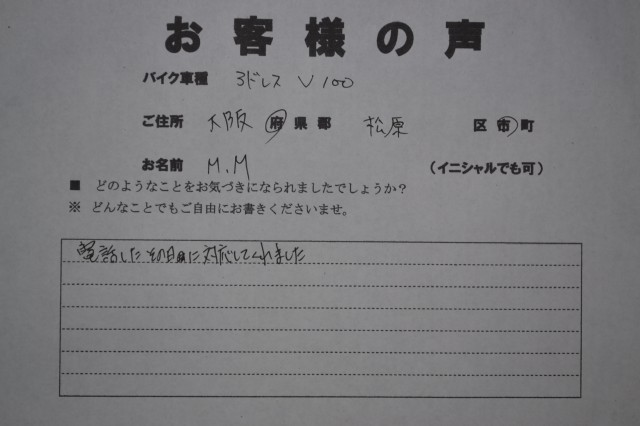 お客様の声
バイク車種 3ドレス V100
ご住所 大阪 府県郡 松原 区市町
お名前 M.M (イニシャルでも可)
■ どのようなことをお気づきになられましたでしょうか?
※ どんなことでもご自由にお書きくださいませ。
電話したその日に対応してくれました